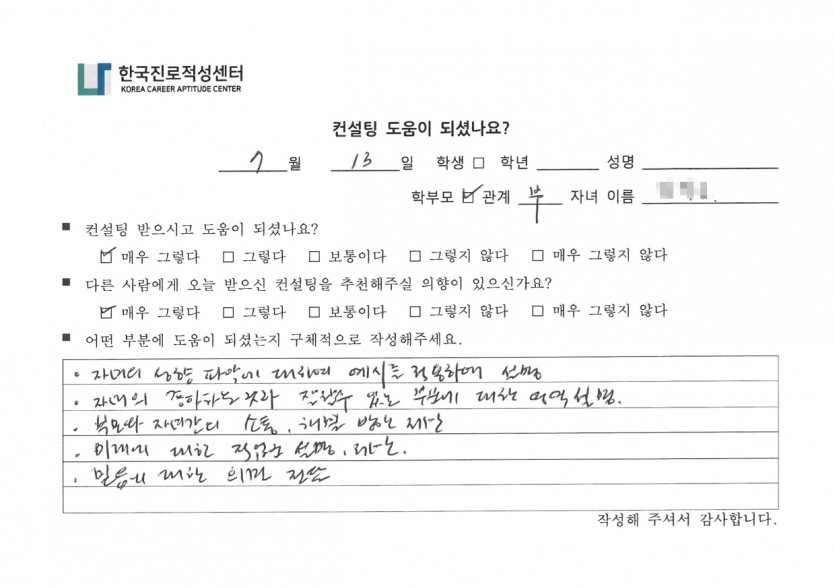 한국진로적성센터
KOREA CAREER APTITUDE CENTER
컨설팅 도움이 되셨나요?
7 월 13 일 학생 □ 학년 성명
학부모 ☑ 관계 부 자녀 이름
■ 컨설팅 받으시고 도움이 되셨나요?
☑ 매우 그렇다 □ 그렇다 □ 보통이다 □ 그렇지 않다 □ 매우 그렇지 않다
■ 다른 사람에게 오늘 받으신 컨설팅을 추천해주실 의향이 있으신가요?
☑ 매우 그렇다 □ 그렇다 □ 보통이다 □ 그렇지 않다 □ 매우 그렇지 않다
■ 어떤 부분에 도움이 되셨는지 구체적으로 작성해주세요.
· 자녀의 성향 파악에 대하여 예시를 적용하여 설명
· 자녀의 것과 수 있는 부분에 대한 영역설명.
· 부모와 자녀간의 소통, 해결 방안 제안
· 미래에 대한 직업군 설명, 제안.
· 믿음에 대한 의미 전달
작성해 주셔서 감사합니다.